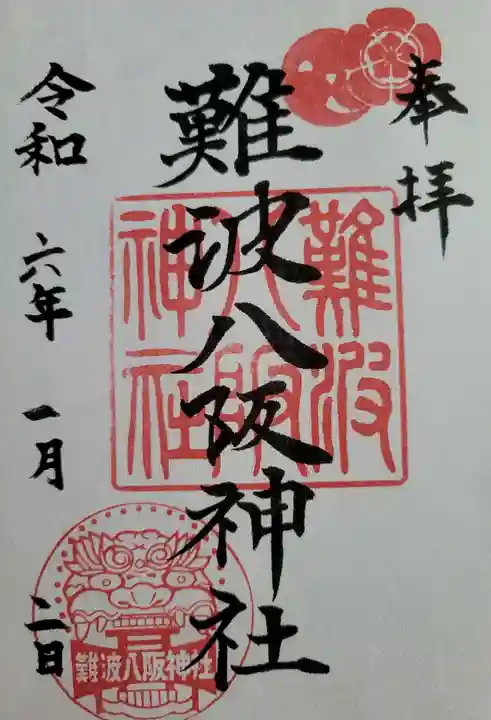 奉拝
難波八阪神社
難波
八阪
神社
令和 六年 一月 二日
難波八阪神社